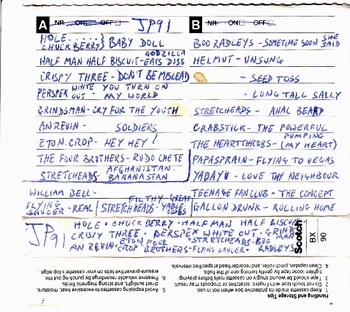 A NR ON OFF JP91
HOLE......}
CHUCK BERRY} BABY DOLL
HALF MAN HALF BISCUIT - GODZILLA EATS DISS
CRISPY THREE - DON'T BE MISLEAD
PERSPEX WHITE YOU TURN ON
OUT - MY WORLD
GRINDSMAN - CRY FOR THE YOUTH
AN REVIN - SOLDIERS
ETON CROP - HEY HEY!
THE FOUR BROTHERS - RUDO CHETE
STRETCHEADS - AFGHANISTAN BANANASTAN
WILLIAM BELL -
FLYING SAUCER - REAL
STRETCHEADS - FILTHY GREAT YABLE COBS
B NR ON OFF
BOO RADLEYS - SOMETIME SOON SHE SAID
HELMUT - UNSUNG
- SEED TOSS
- LONG TALL SALLY
STRETCHEADS - ANAL BEARD
CRABSTICK - THE POWERFUL
THE HEARTTHROBS - PUMPING (MY HEART)
PAPA SPRAIN - FLYING TO VEGAS
YADAYU - LOVE THY NEIGHBOUR
TEENAGE FANCLUB - THE CONCEPT
GALLON DRUNK - ROLLING HOME
JP91
HOLE - CHUCK BERRY - HALF MAN HALF BISCUIT
CRISPY THREE - PERSPEX WHITE OUT - GRINDSMAN
AN REVIN - ETON CROP - FOUR BROTHERS - FLYING SAUCER - STRETCHEADS - BOO RADLEYS
Scotch
BX
90
Handling and Storage Tips